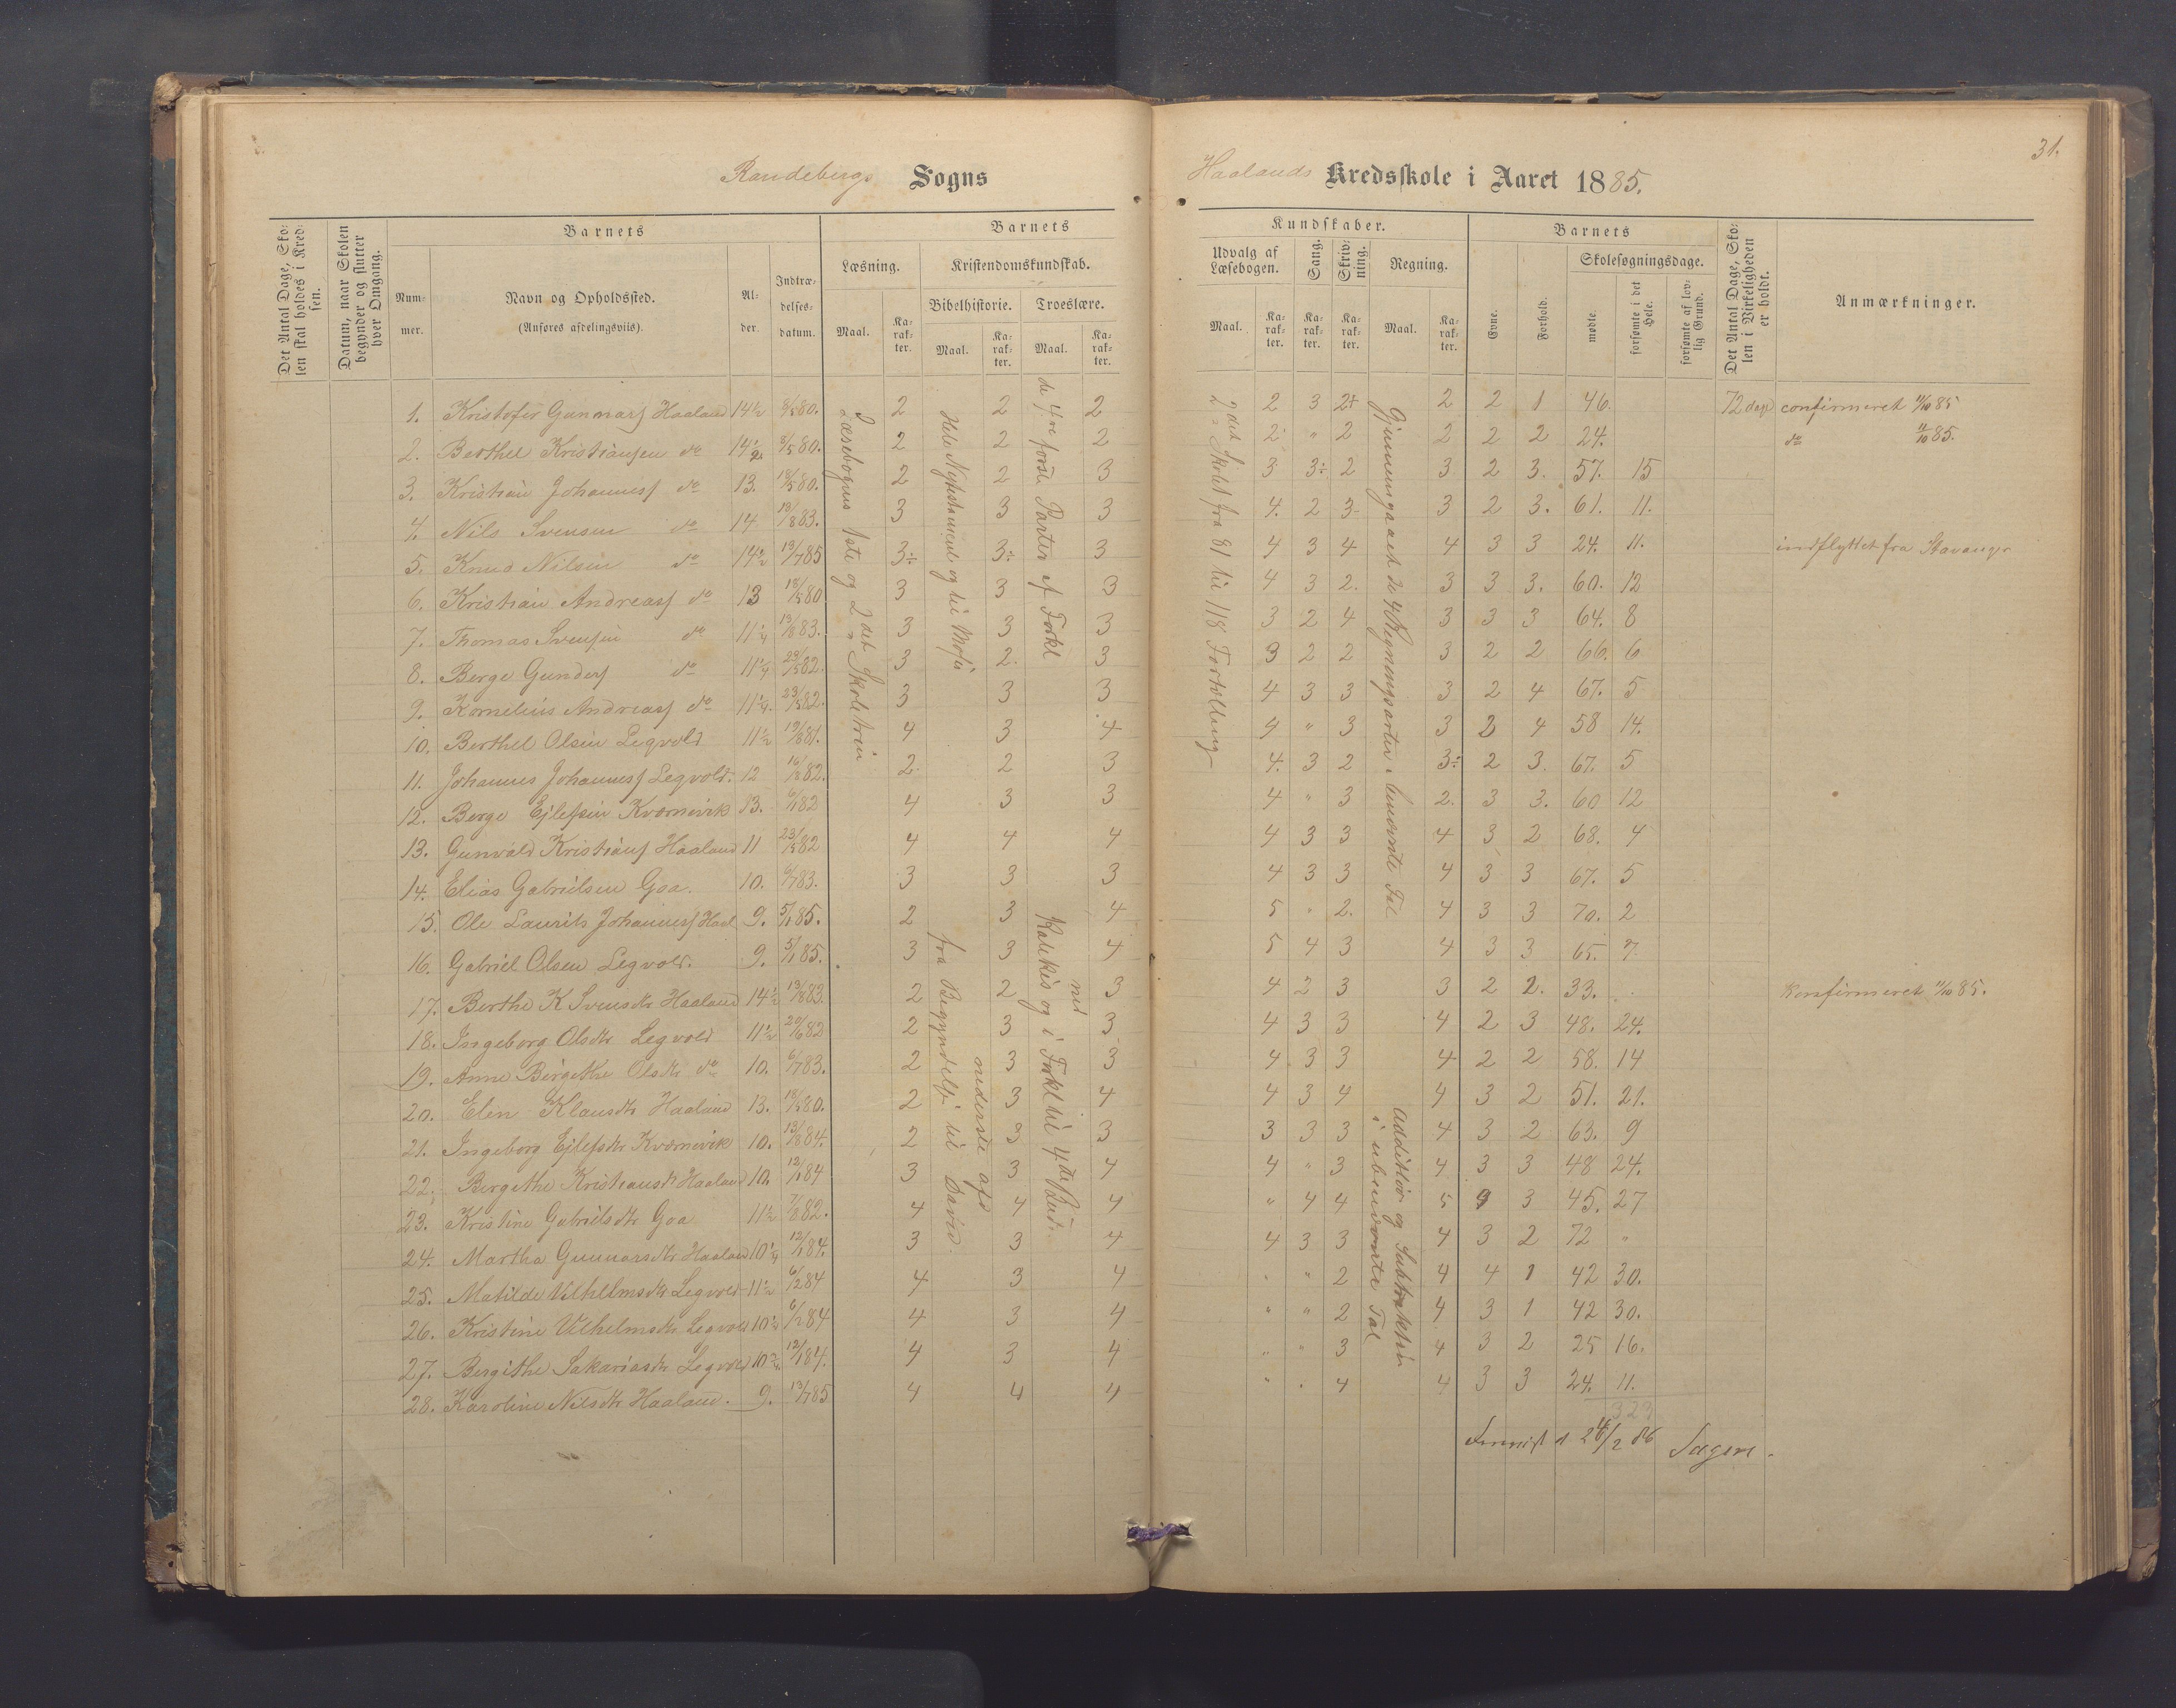 31.
Randebergs Sogns
Haalands Kredsskole i Aaret 1885.
Det Antal Dage, Skolen skal holdes i Kredsen.
Datum, naar Skolen begynder og slutter hver Omgang.
Barnets
Nummer.
Navn og Opholdssted.
(Anføres afdelingsviis).
Alder.
Indtrædelses-datum.
Barnets
Læsning.
Maal.
Karakter.
Kristendomskundskab.
Bibelhistorie.
Maal.
Karakter.
Troeslære.
Maal.
Karakter.
Kundskaber.
Udvalg af Læsebogen.
Maal.
Karakter.
Sang.
Karakter.
Skrivning.
Karakter.
Regning.
Maal.
Karakter.
Barnets
Evne.
Forhold.
Skolesøgningsdage.
mødte.
forsømte i det Hele.
forsømte af lovlig Grund.
Det Antal Dage, Skolen i Virkeligheden er holdt.
Anmærkninger.
1. Kristofer Gunnars Haaland 14½ 8/5 80. 2 2 2 2 3 2+ 2 2 1 46. 72 dage confirmeret 11/10 85
2. Berthel Kristiansen do 14½ 8/5 80. 2 2 2 2 " 2 2 2 2 24. do 11/10 85.
3. Kristian Johanness do 13. 18/5 80. 2 2 3 3 3÷ 2 3 2 3. 57. 15
4. Nils Svensen do 14. 13/8 83. 3 3 3 4. 2 3- 3 2 3. 61. 11.
5. Knud Nilsen do 14½ 13/7 85 3÷ 3÷ 3 4 3 4 4 3 3 24. 11. indflyttet fra Stavanger
6. Kristian Andreas do 13 18/5 80 3 3 3 4 3 2. 3 3 3. 60. 12
7. Thomas Svensen do 11¼ 13/8 83. 3 3 3 3 2 4 3 3 3 64. 8
8. Berge Gunders do 11¼ 23/5 82. 3 2. 3 3 2 2 3 2 2 66. 6
9. Kornelius Andreas do 11¼. 23/5 82. 3 3 3 4 3 3 3 2 4 67. 5
10. Berthel Olsen Legvold 11½ 19/8 81. 4 3 4 4 " 3 3 3 4 58 14.
11. Johannes Johanness Legvold. 12 16/8 82. 2. 2 3 4. 3 2 3÷ 2 3. 67. 5
12. Berge Ejlefsen Kværnevik 13. 6/1 82 4 3 3 4 " 3 2. 3 3. 60 12
13. Gunvald Kristians Haaland 11 23/5 82 4 4 4 4 3 3 4 3 2 68. 4
14. Elias Gabrielsen Goa. 10. 6/7 83. 3 3 3 4 3 3 4 3 3 67. 5
15. Ole Laurits Johanness Haal 9. 5/1 85. 2 3 4 5 " 2. 4 3 3 70. 2
16. Gabriel Olsen Legvold. 9. 5/1 85. 3 3 4 5 4 3 4 3 3 65. 7
17. Berthe K Svensdtr Haaland 14½ 13/8 83. 2 2 3 4 2 3 3 2 2. 33. Konfirmeret 11/10 85.
18. Ingeborg Olsdtr Legvold 11½ 20/6 82 2 3 3 4 3 3 4 2 3 48. 24.
19. Anne Bergithe Olsdtr do 10. 6/7 83. 2 3 3 4 3 3 4 2 2 58. 14
20. Elen Klausdtr Haaland 13. 18/5 80. 2 3 4 4 3 4 4 3 2 51. 21.
21. Ingeborg Ejlefsdtr Kværnevik 10. 13/8 84. 2 3 3 3 3 3 4 3 2 63. 9
22. Bergithe Kristiansdtr Haaland 10. 12/1 84 3 3 4 4 " 3 4 3 3 48 24.
23. Kristine Gabrielsdtr Goa 11½ 7/8 82. 4 4 4 " 4 4 5 4 3 45. 27
24. Martha Gunnarsdtr Haaland 10¼ 12/1 84. 3 3 4 4 3 3 4 3 2 72 "
25. Matilde Vilhelmsdtr Legvold 11½ 6/2 84 4 3 4 " " 2 4 4 1 42 30.
26. Kristine Vilhelmsdtr Legvold 10½ 6/2 84 4 3 4 " " 2 4 3 1 42 30.
27. Bergithe Sakariasdtr Legvold 10¾ 12/1 84. 4 3 4 " " 3 4 3 2 25 16.
28. Karoline Nilsdtr Haaland. 9. 13/7 85 4 4 4 " " 4 4 3 3 24. 11.
Læsebogens 1ste og 2det Skoletrin
Hele Nytestament og til Moses
fra Begyndelse til David
nederste afd
de 4re første Parter af Forkl
Katekis og i Forkl til 4de Bud
2det Skolet fra 81 til 118 Fortælling
Gjennemgaaet de 4 Regningsarter i benævnte Tal
Addition og Subtraktion
i ubenævnte Tal
323
d 24/2 86